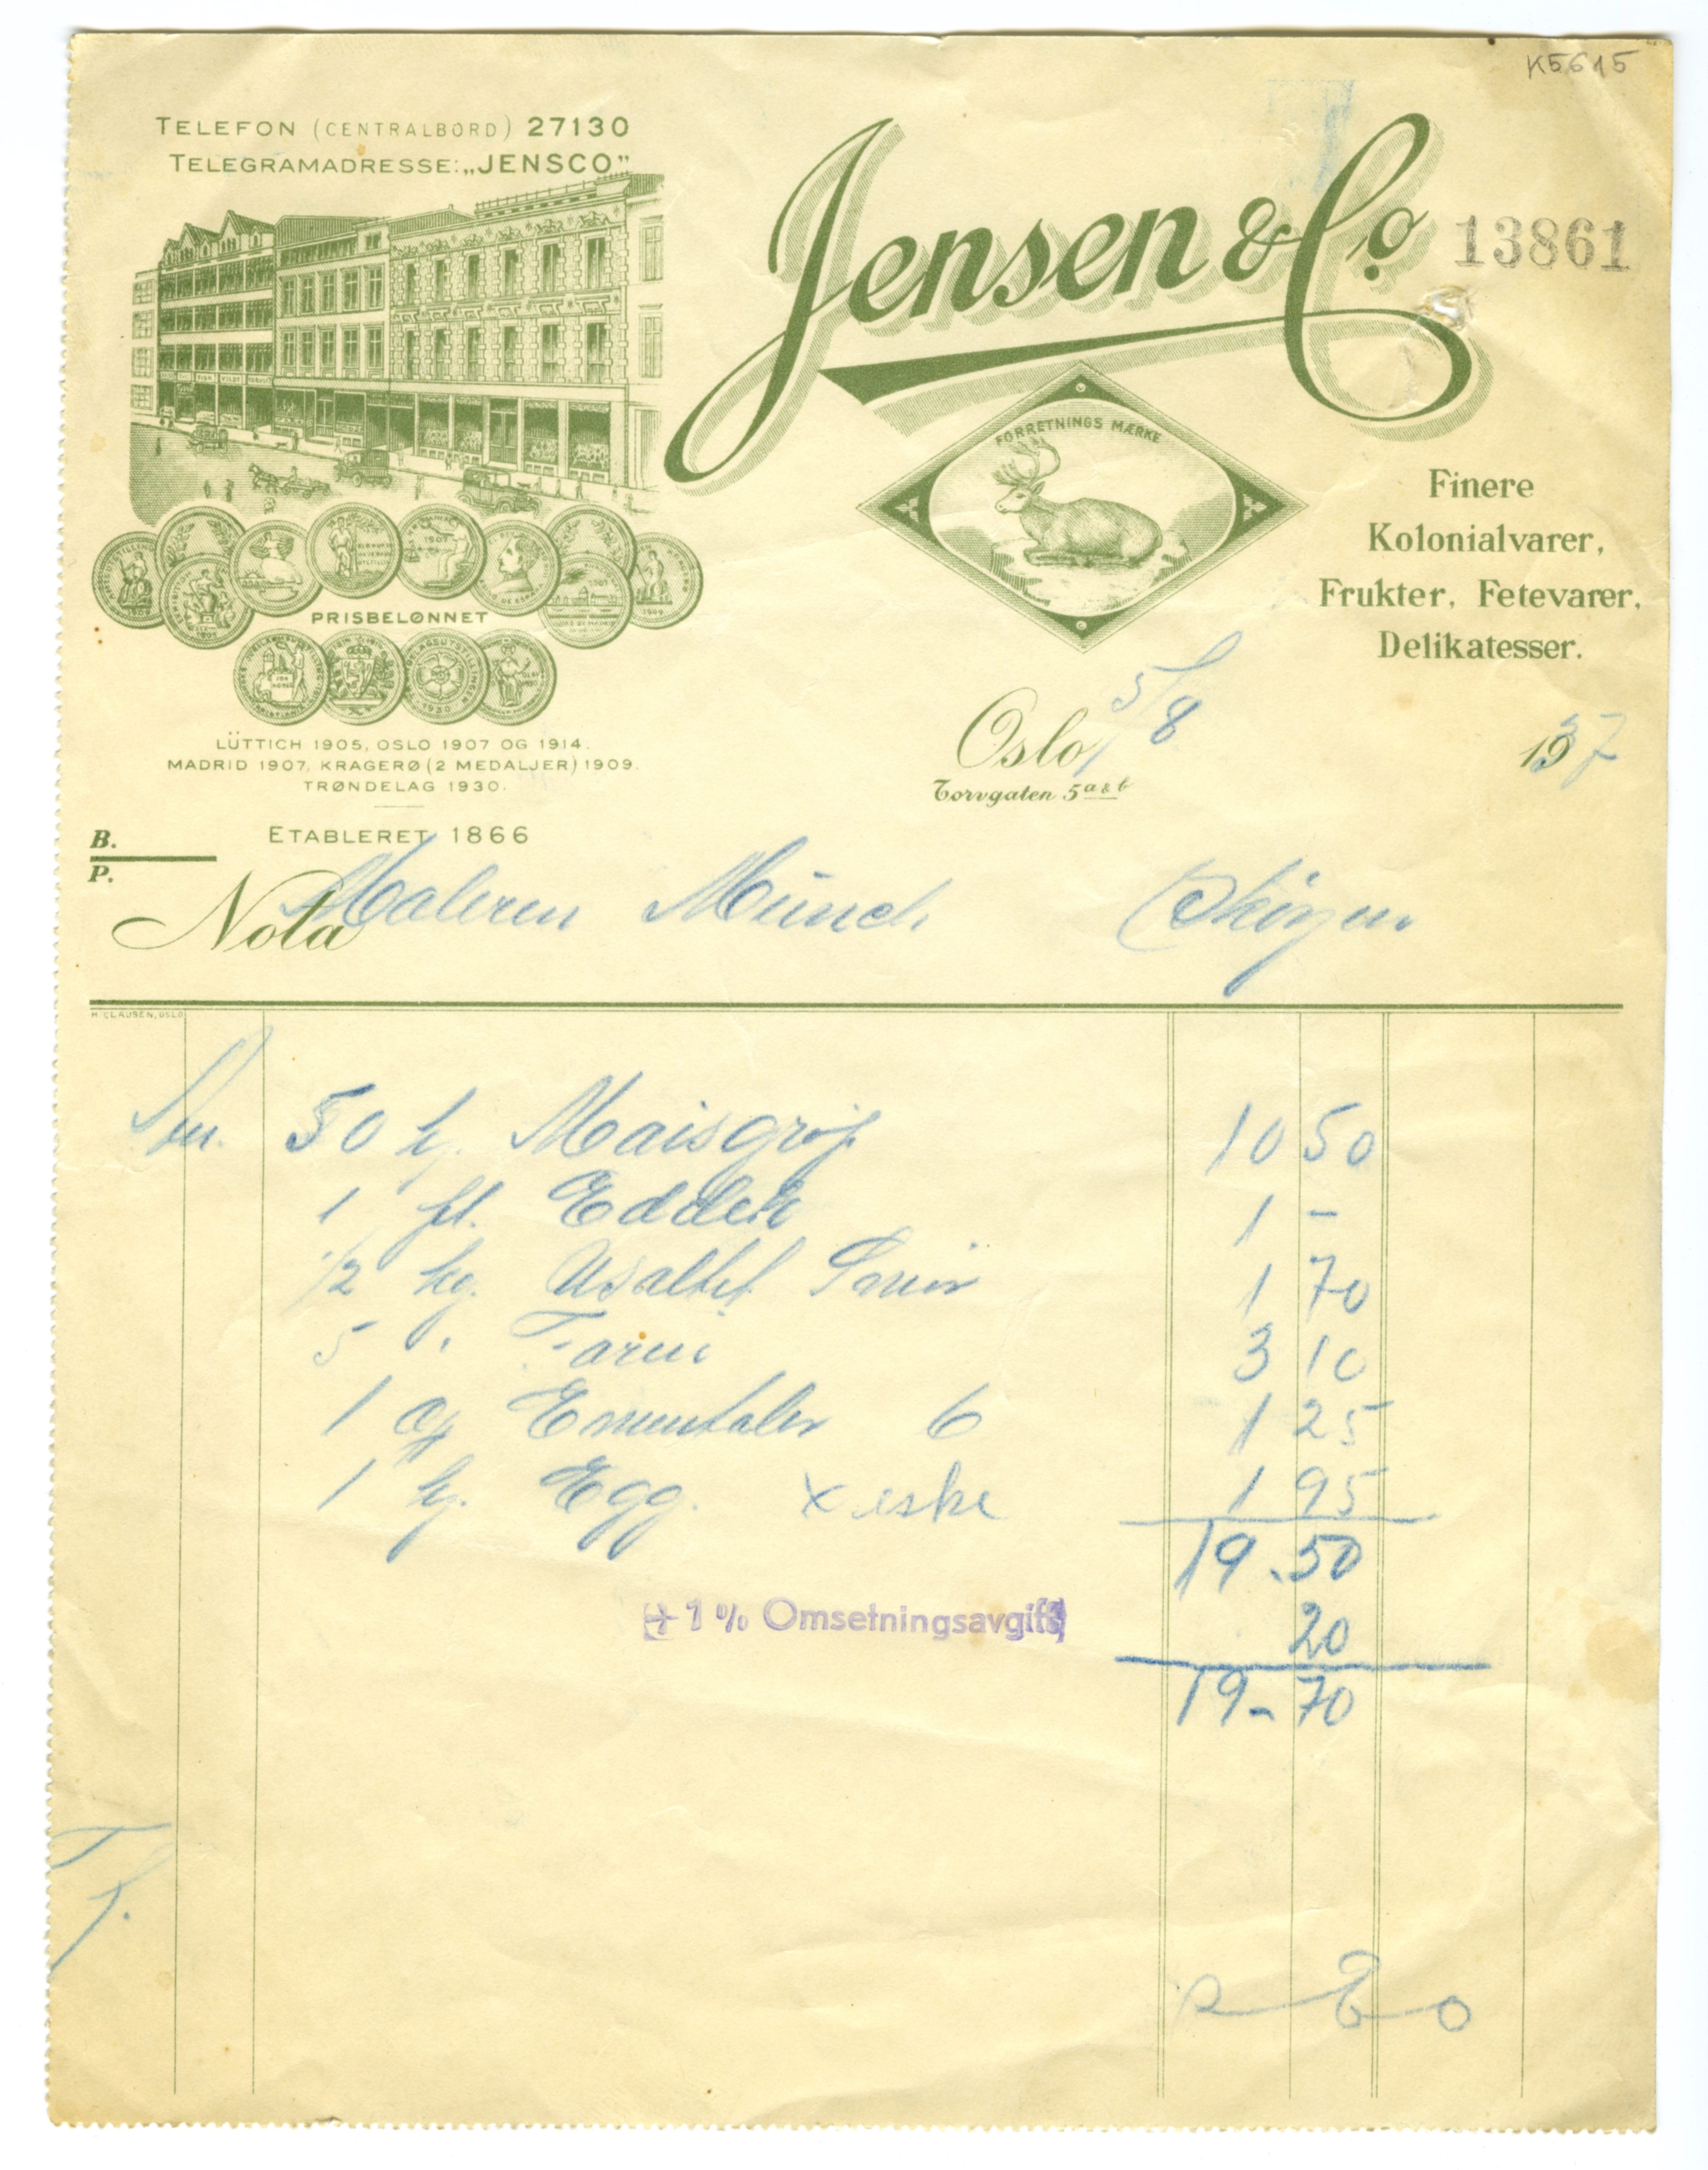 K5615
TELEFON (CENTRALBORD) 27130
TELEGRAMADRESSE: „JENSCO”
Jensen & Co
13861
FORRETNINGS MÆRKE
Finere
Kolonialvarer,
Frukter, Fetevarer,
Delikatesser.
PRISBELØNNET
LÜTTICH 1905, OSLO 1907 OG 1914.
MADRID 1907, KRAGERØ (2 MEDALJER) 1909.
TRØNDELAG 1930.
ETABLERET 1866
Oslo, 5/8 1937
Torvgaten 5 a & b
B.
P.
Nota Maleren Münch Skøyen
H. CLAUSEN, OSLO
50 kg. Maisgrøp 10 50
1 fl. Eddik 1 -
1/2 kg. Usaltet Smør 1 70
5 " 3 10
1 Ementaler 6 1 25
1 kg. Egg. x eske 1 95
19.50
+ 1 % Omsetningsavgift 20
19-70